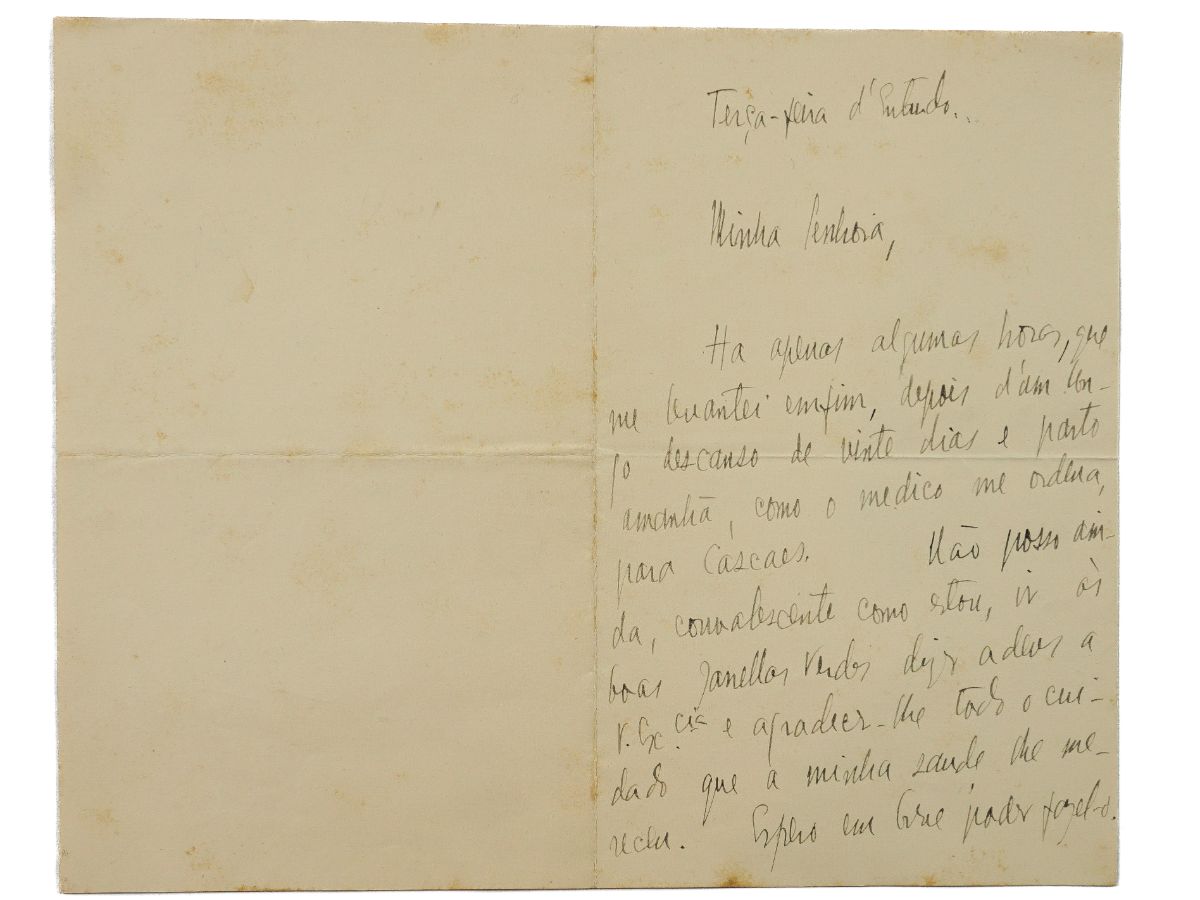 Terça-feira d'Entrudo..
Minha Senhora,
Ha apenas algumas horas, que
me levantei emfim, depois d'um lon-
go descanso de vinte dias e parto
amanhã, como o medico me ordena,
para Cascaes. Não posso ain-
da, convalescente como estou, ir ás
boas Janellas Verdes dizer adeus a
V. Ex.cia e agradecer-lhe todo o cui-
dado que a minha saude lhe me-
receu. Espero em breve poder fazel-o.